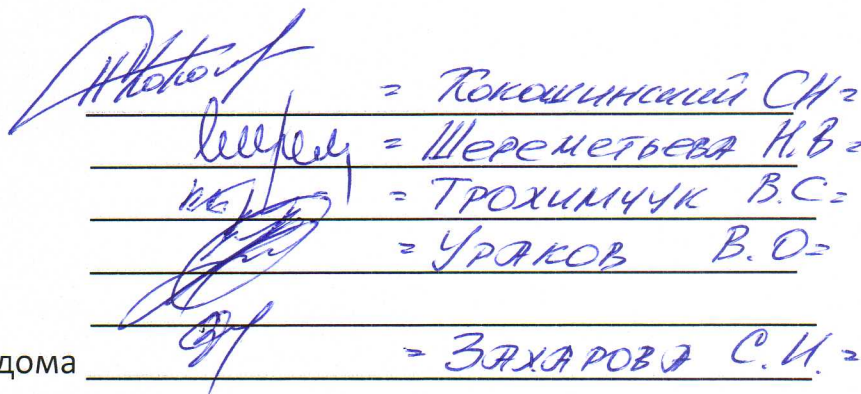 = Кокошинский СН =
= Шереметьева Н.В =
= Трохимчук В.С. =
= Ураков В.О =
дома = Захарова С.И. =